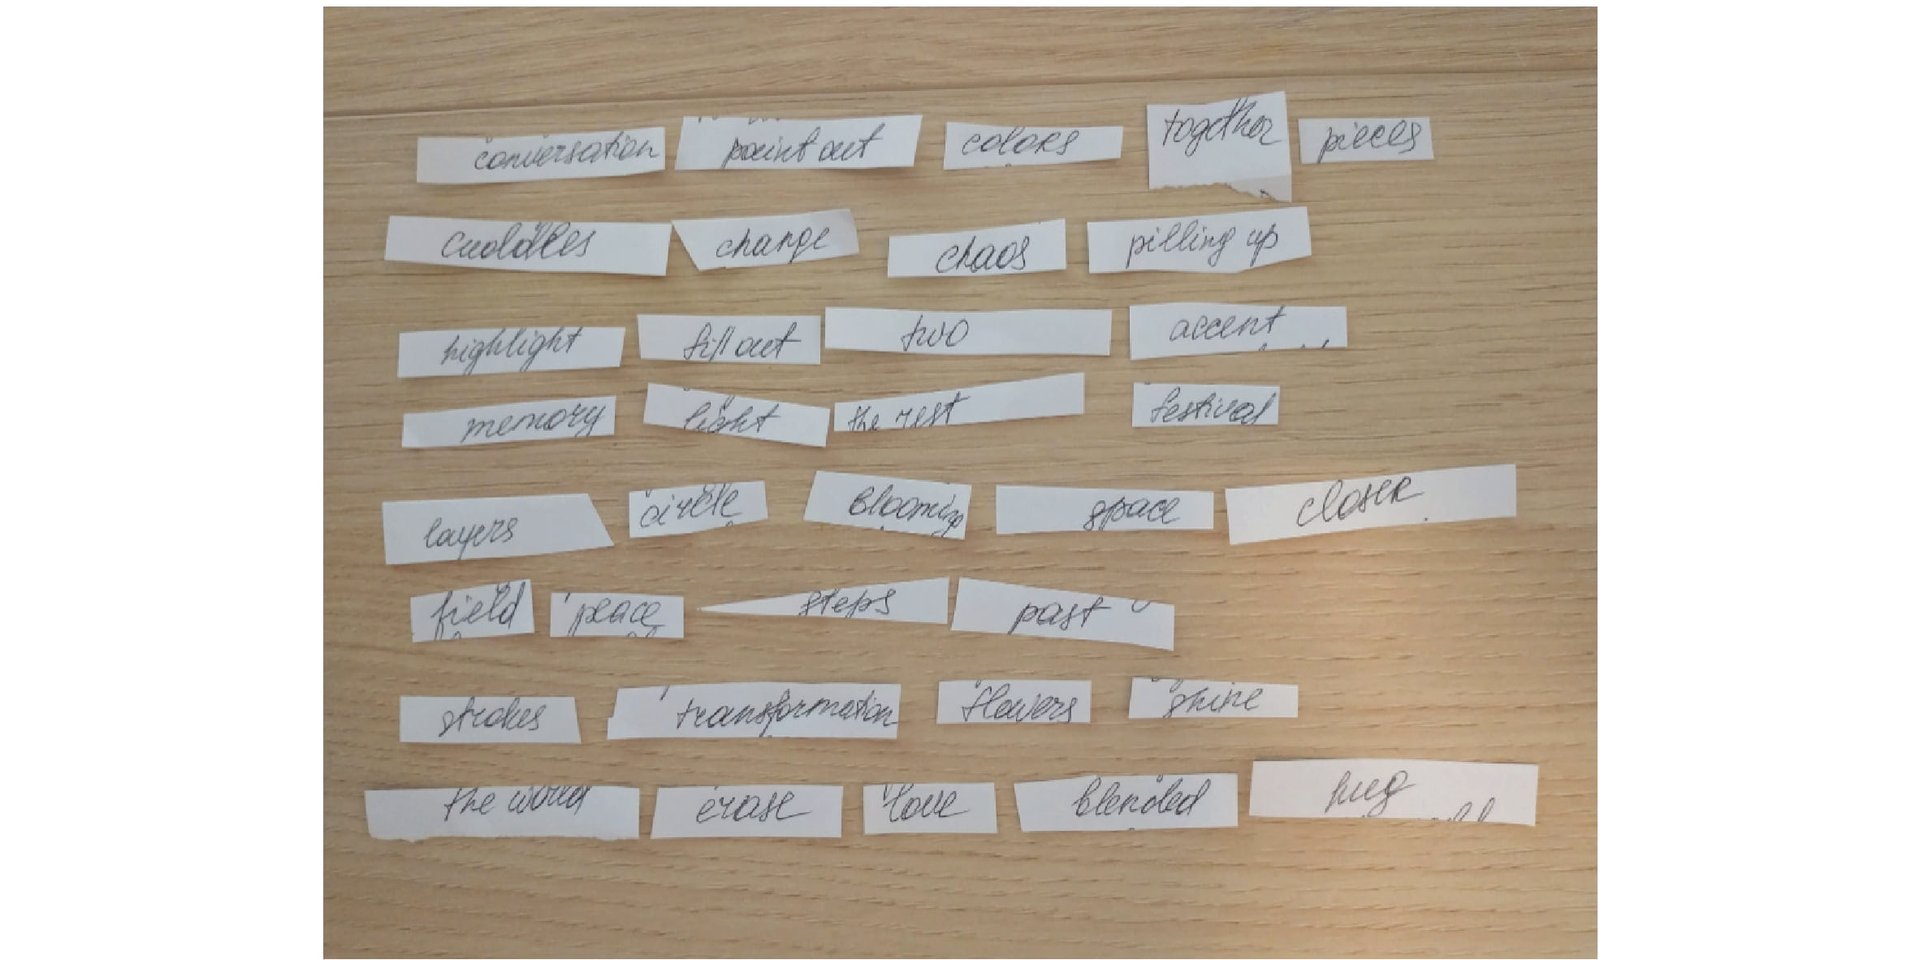 conversation paint out colors together pieces
cuddles change chaos pilling up
highlight fill out two accent
memory light the rest festival
layers circle blooming space closer
field peace steps past
strokes transformation flowers shine
the world erase love blended hug